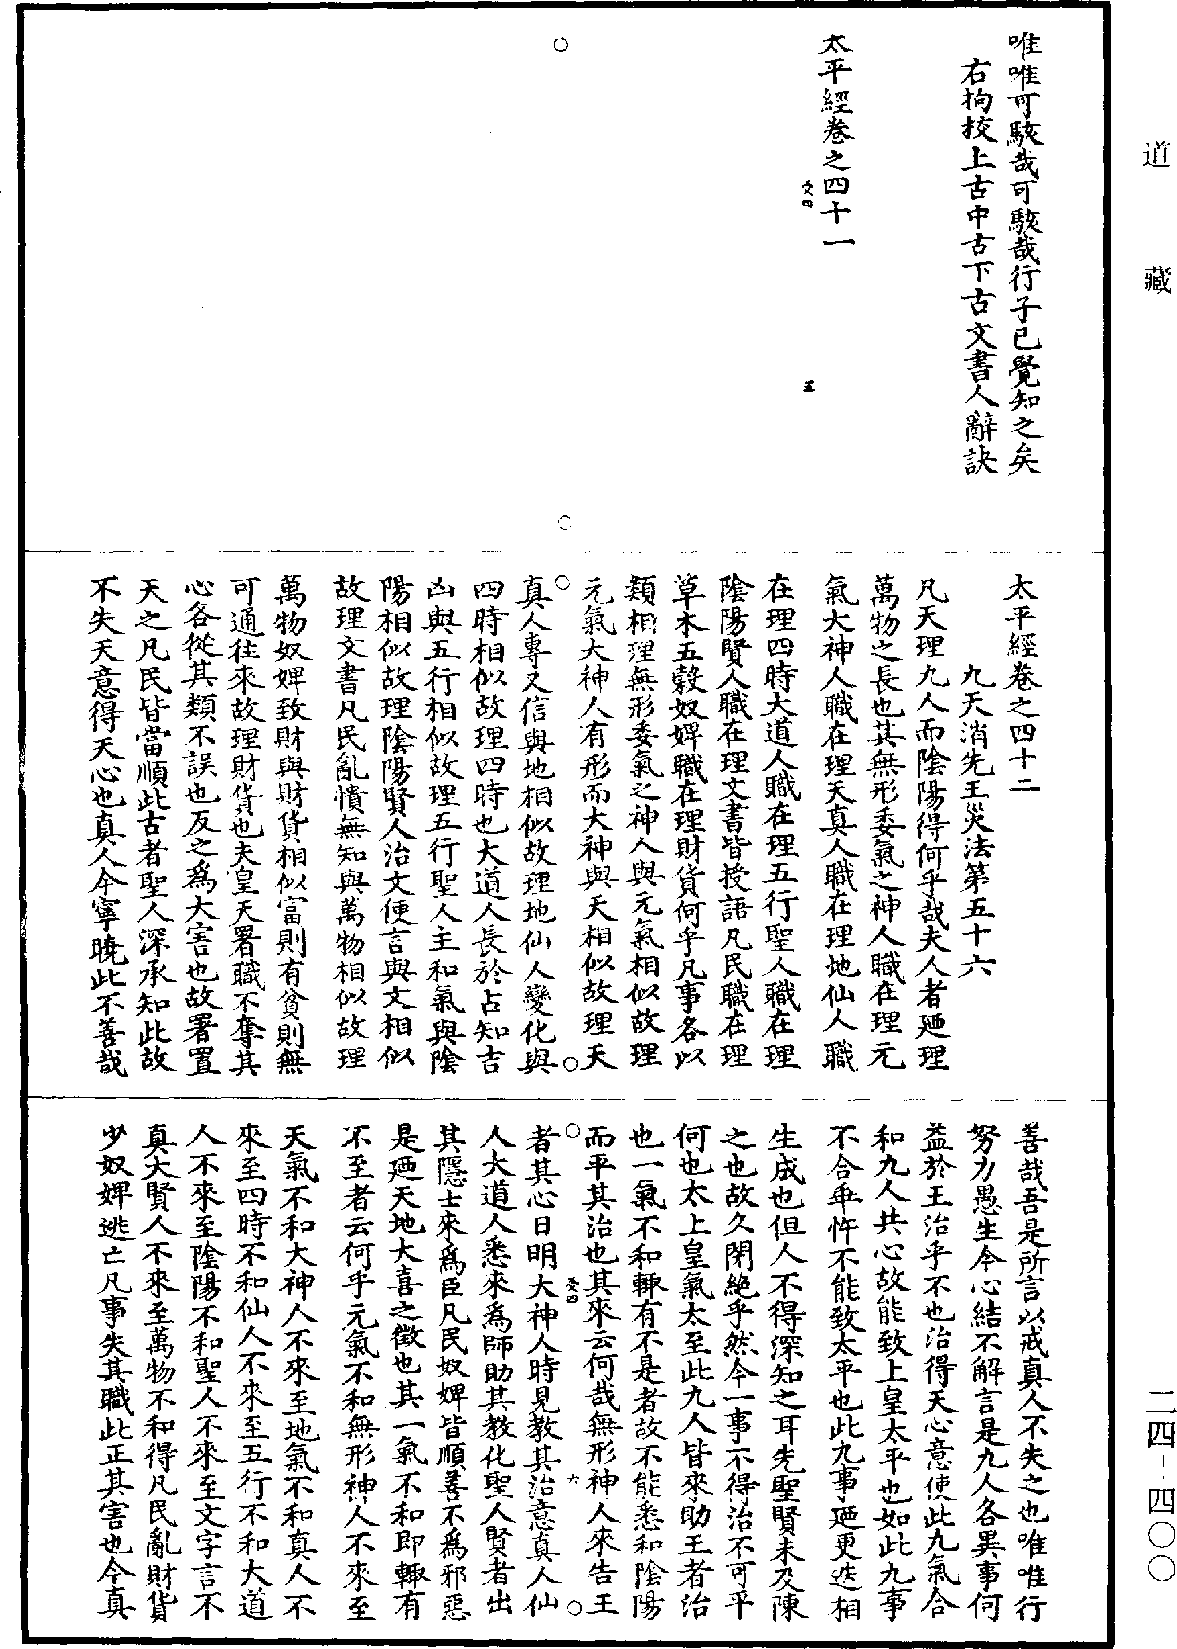 道藏
唯唯可駭哉可駭哉行子已覺知之矣
右拘校上古中古下古文書人辭訣
太平經卷之四十一
受四
五
太平經卷之四十二
九天消先王災法第五十六
凡天理九人而陰陽得何乎哉夫人者廼理
萬物之長也其無形委氣之神人職在理元
氣大神人職在理天真人職在理地仙人職
在理四時大道人職在理五行聖人職在理
陰陽賢人職在理文書皆授語凡民職在理
草木五穀奴婢職在理財貨何乎凡事各以
類相理無形委氣之神人與元氣相似故理
元氣大神人有形而大神與天相似故理天
真人專又信與地相似故理地仙人變化與
四時相似故理四時也大道人長於占知吉
凶與五行相似故理五行聖人主和氣與陰
陽相似故理陰陽賢人治文便言與文相似
故理文書凡民亂憒無知與萬物相似故理
萬物奴婢致財與財貨相似富則有貧則無
可通往來故理財貨也夫皇天署職不奪其
心各從其類不誤也反之為大害也故署置
天之凡民皆當順此古者聖人深承知此故
不失天意得天心也真人今寧曉此不善哉
善哉吾是所言以戒真人不失之也唯唯行
努力愚生今心結不解言是九人各異事何
益於王治乎不也治得天心意使此九氣合
和九人共心故能致上皇太平也如此九事
不合乖忤不能致太平也此九事廼更迭相
生成也但人不得深知之耳先聖賢未及陳
之也故久閉絕乎然今一事不得治不可平
何也太上皇氣太至此九人皆來助王者治
也一氣不和輒有不是者故不能悉和陰陽
而平其治也其來云何哉無形神人來告王
受四
六
者其心日明大神人時見教其治意真人仙
人大道人悉來為師助其教化聖人賢者出
其隱士來為臣凡民奴婢皆順善不為邪惡
是廼天地大喜之徵也其一氣不和即輒有
不至者云何乎元氣不和無形神人不來至
天氣不和大神人不來至地氣不和真人不
來至四時不和仙人不來至五行不和大道
人不來至陰陽不和聖人不來至文字言不
真大賢人不來至萬物不和得凡民亂財貨
少奴婢逃亡凡事失其職此正其害也今真
二四-四〇〇